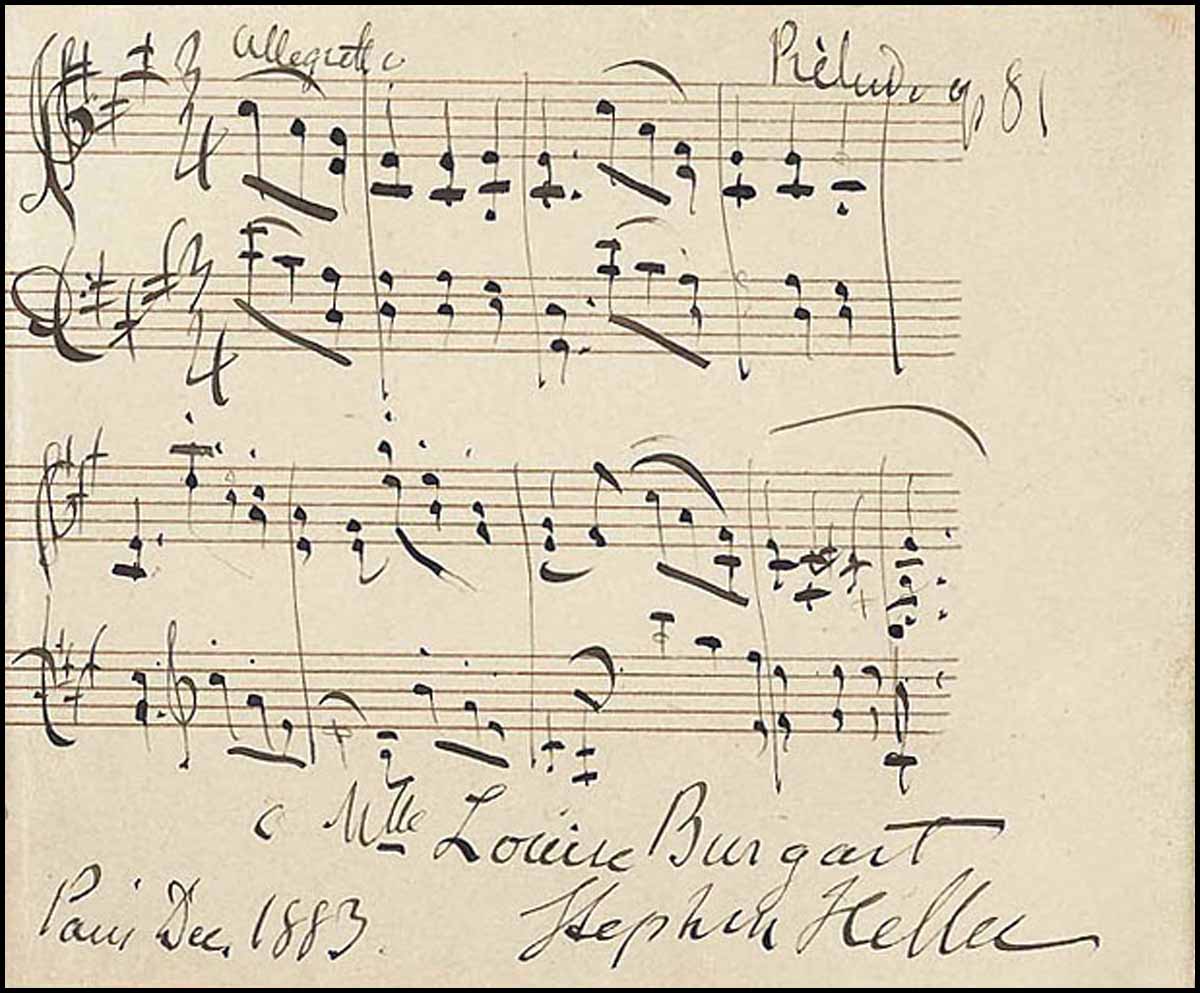 Allegretto
Prélude op 81
3 4
3 4
à Mlle Louise Burgart
Paris Dec. 1883.
Stephen Heller